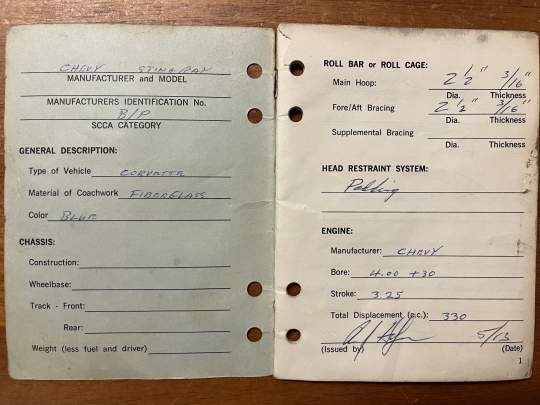 CHEVY STING RAY
MANUFACTURER and MODEL
MANUFACTURERS IDENTIFICATION No.
B/P
SCCA CATEGORY
GENERAL DESCRIPTION:
Type of Vehicle CORVETTE
Material of Coachwork FIBERGLASS
Color BLUE
CHASSIS:
Construction:
Wheelbase:
Track - Front:
Rear:
Weight (less fuel and driver)
ROLL BAR or ROLL CAGE:
Main Hoop: 2 1/2" 3/16"
Dia. Thickness
Fore/Aft Bracing 2 1/2" 3/16"
Dia. Thickness
Supplemental Bracing
Dia. Thickness
HEAD RESTRAINT SYSTEM:
Padding
ENGINE:
Manufacturer: CHEVY
Bore: 4.00 +30
Stroke: 3.25
Total Displacement (c.c.): 330
5/13
(Issued by) (Date)
1